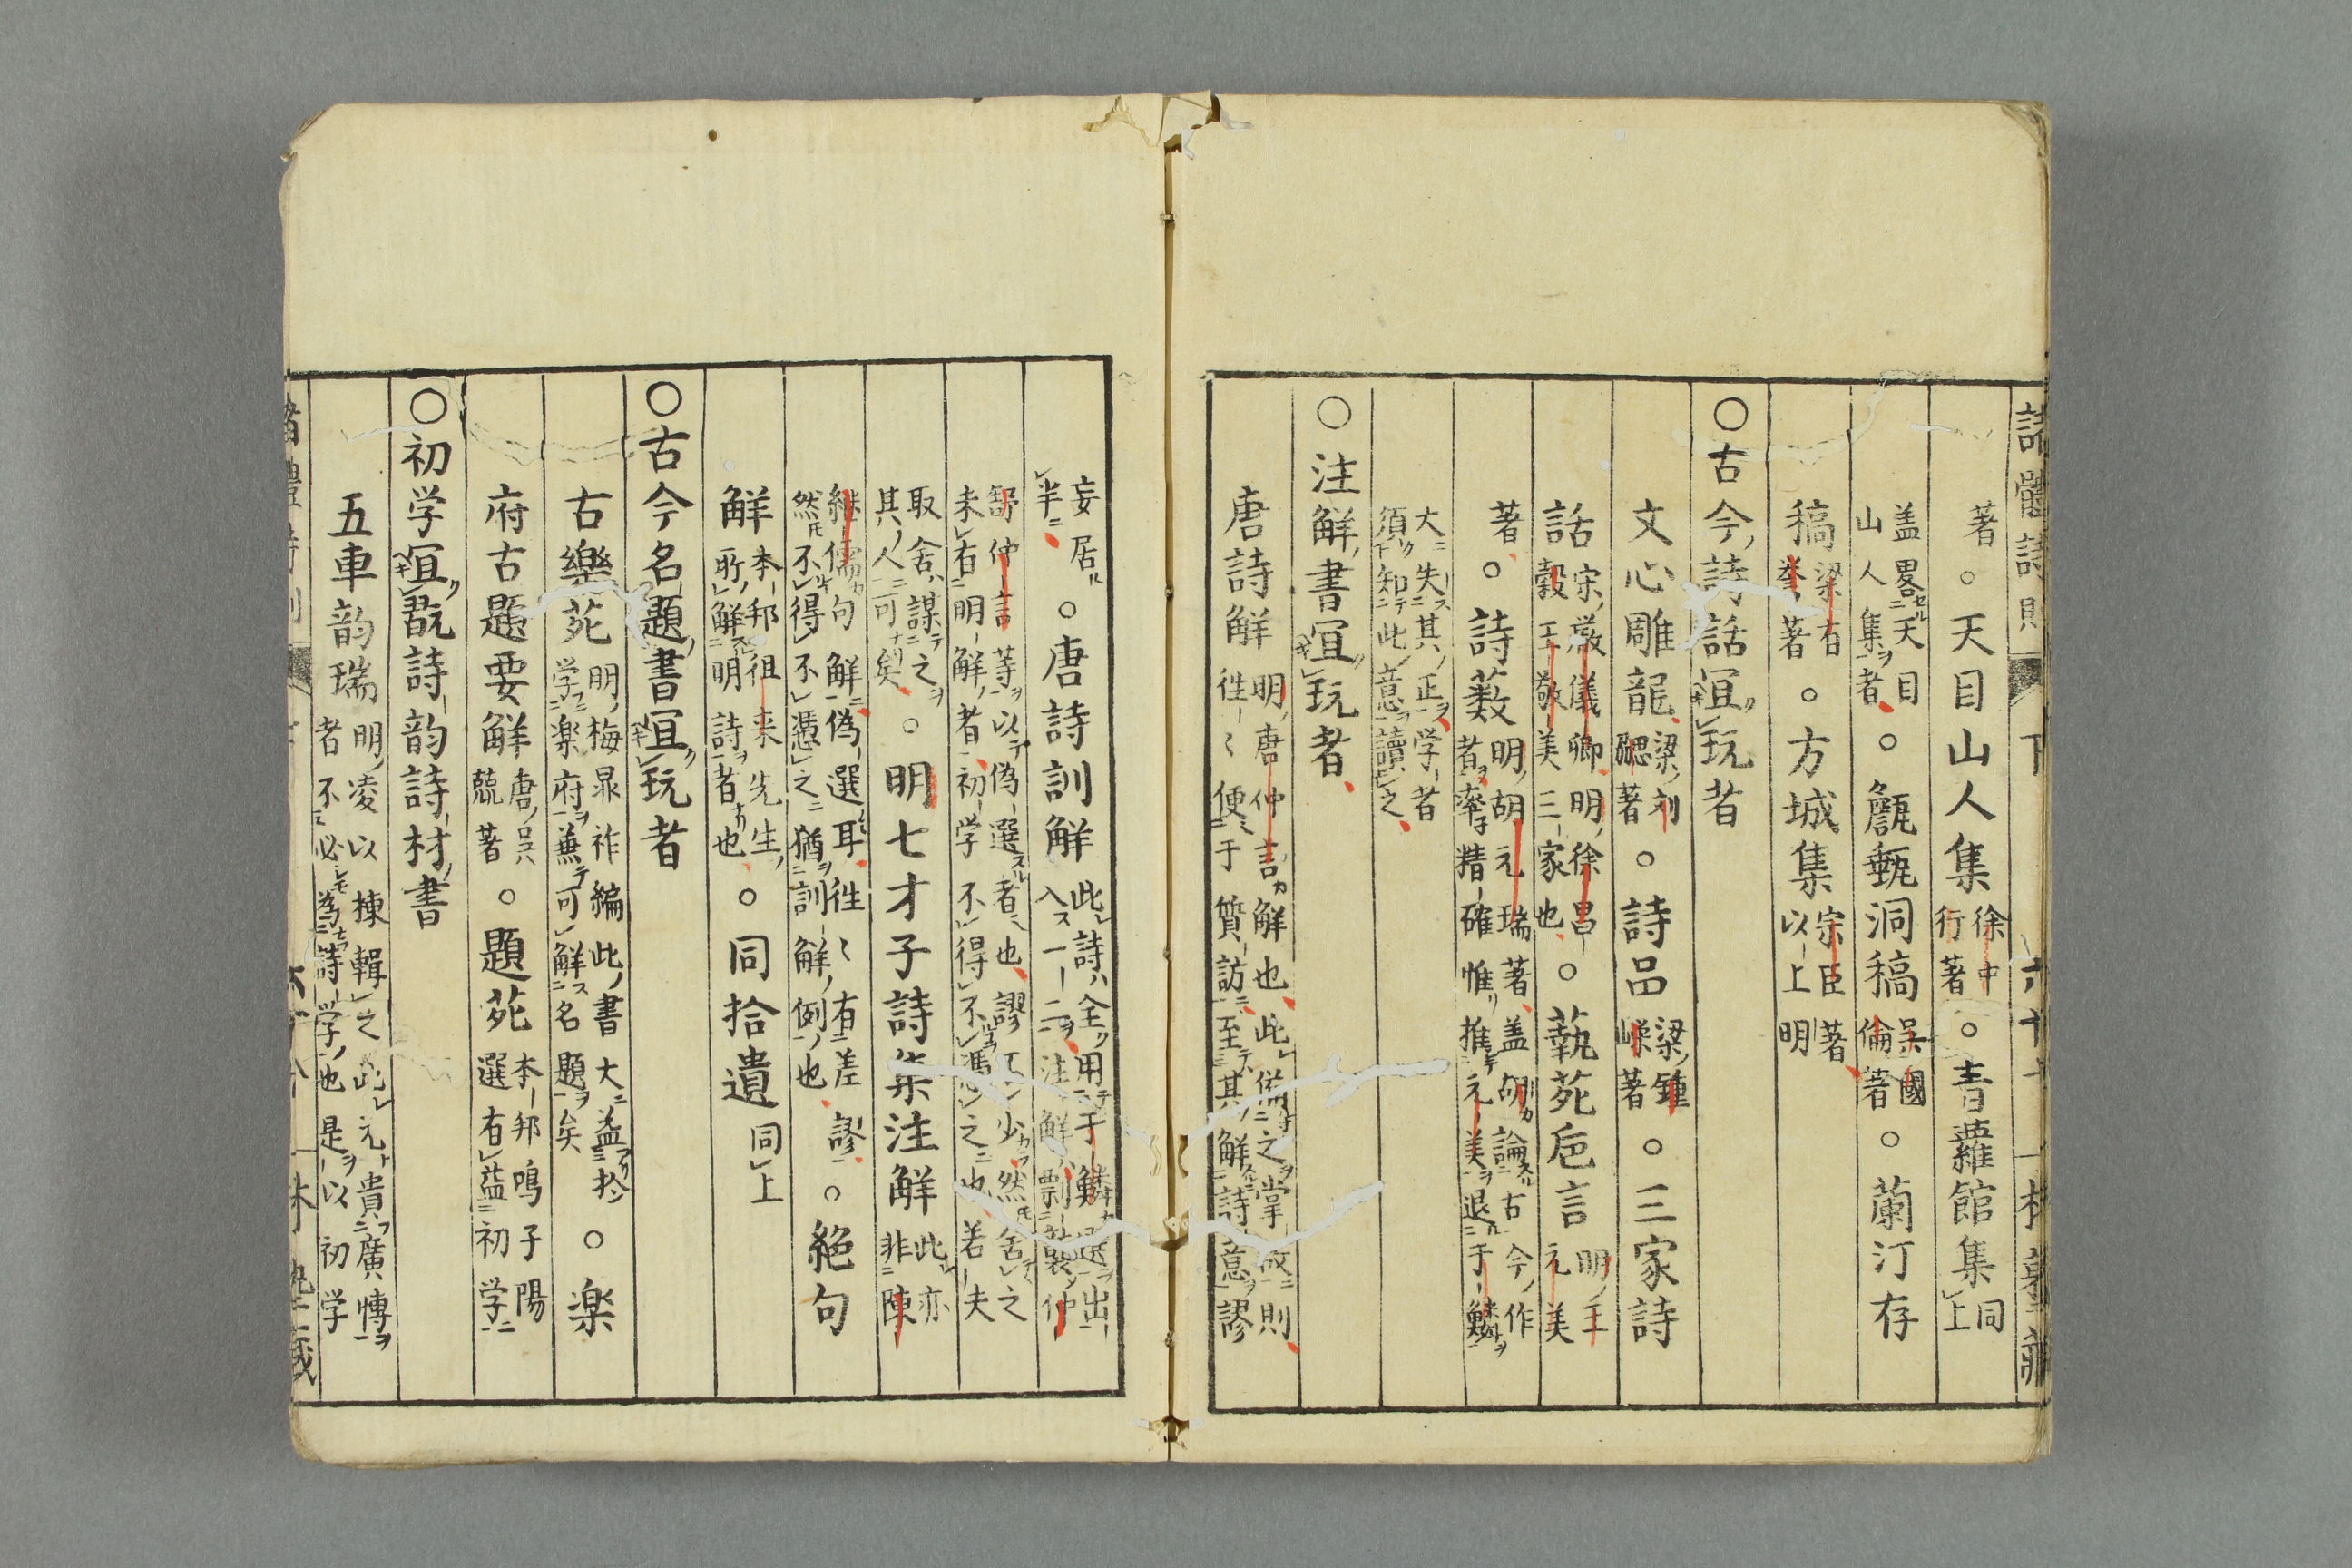 諸體詩則 下
著。天目山人集徐中行著。青蘿館集同上
盖畧天目山人集者。甔甀洞稿吳國倫著。蘭汀存
稿梁有誉著。方城集宗臣著以上明
○古今詩話宜玩者
文心雕龍梁刘勰著。詩品梁鍾嶸著。三家詩
話宋嚴儀卿明徐昌穀王敬美三家也。藝苑巵言明王元美
著。詩藪明胡元瑞著盖胡論古今作者率精確惟推元美退于鱗
大失其正学者須知此意讀之
○注解書宜玩者
唐詩解明唐仲言解也此之掌故則徃〻便于質訪至其解詩意謬
妄居半。唐詩訓解此詩全用于鱗選出入一二注解剽襲仲
舒仲言等以偽選者也謬不少然舍之未有明解者初学不得不憑之也若夫
取舍謀之其人可矣。明七才子詩集注解此亦非陳
継儒句解偽選耳徃〻有差謬然不得不憑之猶訓解例也。絕句
解李邦祖来先生所解明詩者也。同拾遺同上
○古今名題書宜玩者
古樂苑明梅鼎祚編此書大益於学楽府兼可解名題矣。楽
府古題要解唐吳兢著。題苑李邦鳴子陽選有益初学
○初学宜翫詩韵詩材書
五車韵瑞明凌以棟輯之此元貴廣博者不必為詩学也是以初学